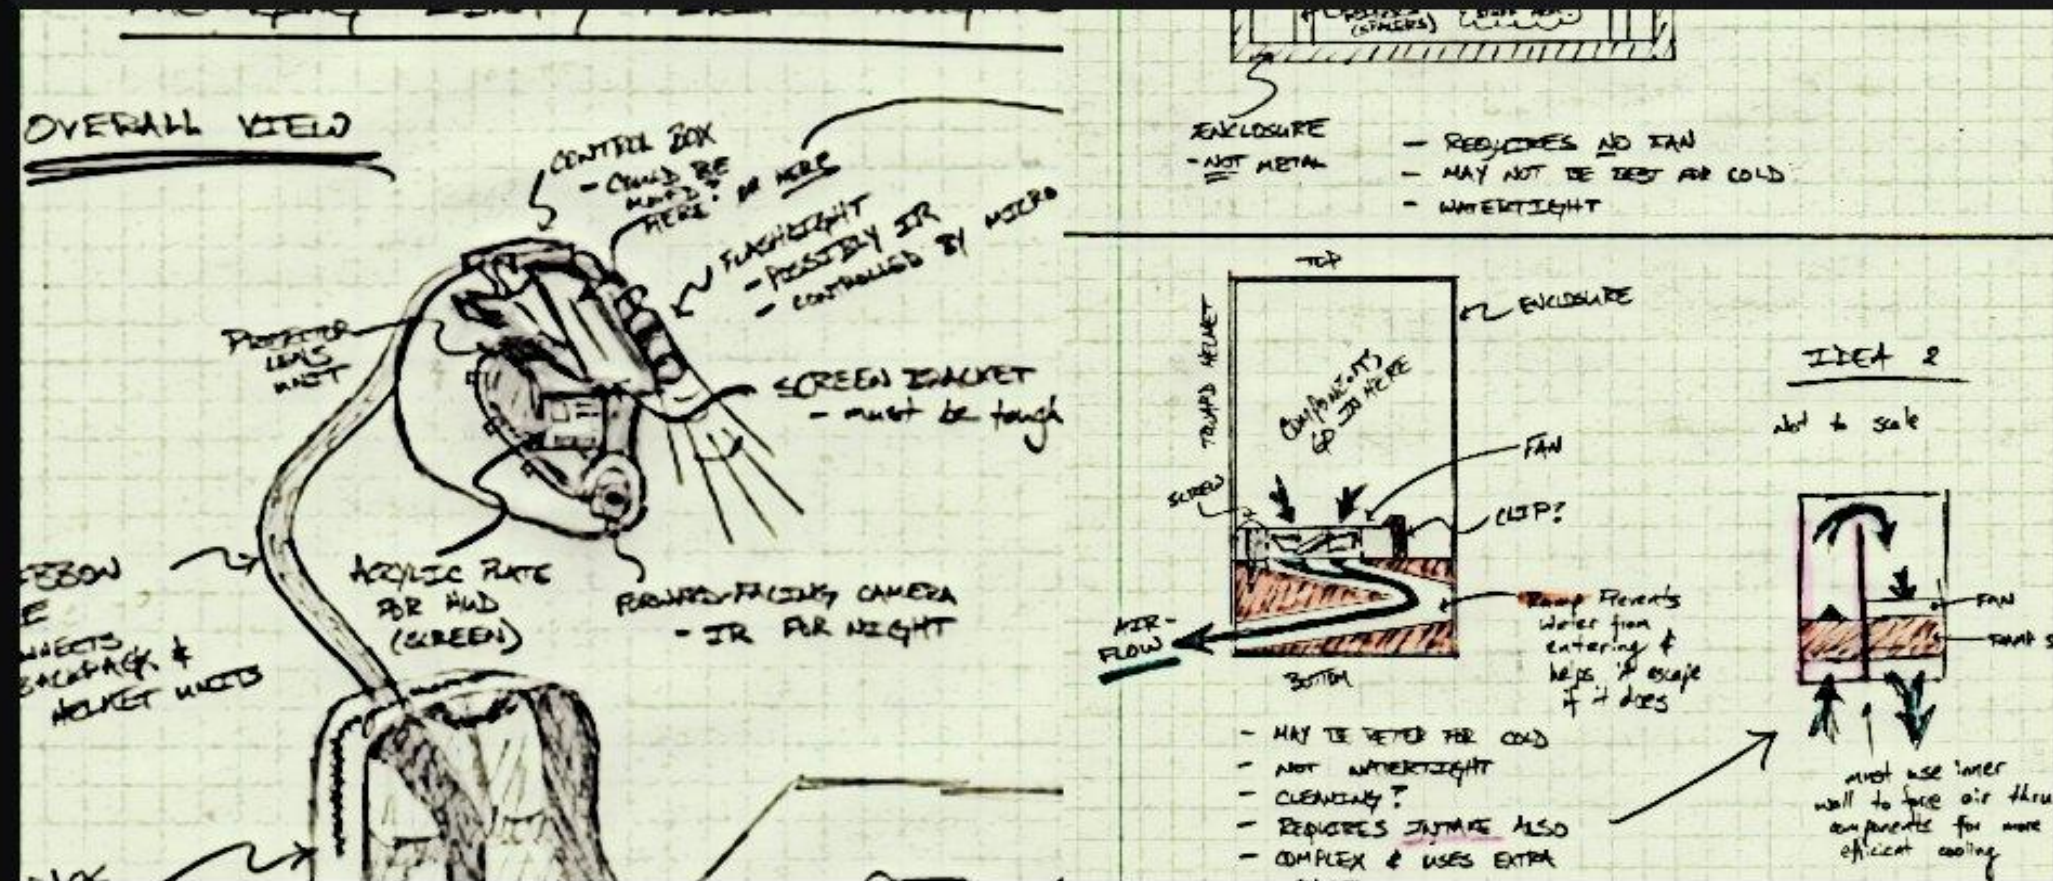 OVERALL VIEW
CONTROL BOX
- COULD BE
HERE? OR HERE
FLASHLIGHT
- POSSIBLY IR
- CONTROLLED BY MICRO
PROJECTOR
LENS
UNIT
SCREEN BRACKET
- must be tough
ACRYLIC PLATE
FOR HUD
(SCREEN)
FORWARD-FACING CAMERA
- IR FOR NIGHT
BACKPACK &
HELMET UNITS
(SPACERS)
ENCLOSURE
- NOT METAL
- REQUIRES NO FAN
- MAY NOT BE BEST FOR COLD
- WATERTIGHT
TOP
ENCLOSURE
TOWARD HELMET
COMPONENTS
GO IN HERE
FAN
SCREW
CLIP?
AIR-
FLOW
BOTTOM
Ramp Prevents
water from
entering &
helps it escape
if it does
- MAY BE BETER FOR COLD
- NOT WATERTIGHT
- CLEANING?
- REQUIRES INTAKE ALSO
- COMPLEX & USES EXTRA
IDEA 2
Not to scale
FAN
RAMP S
must use inner
wall to force air thru
components for more
efficient cooling